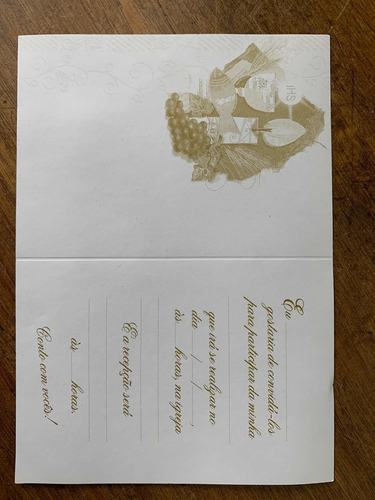 IHS
Eu
gostaria de convidá-los
para participar da minha
que irá se realizar no
dia / / ,
às horas, na igreja
E a recepção será
às horas.
Conto com vocês!